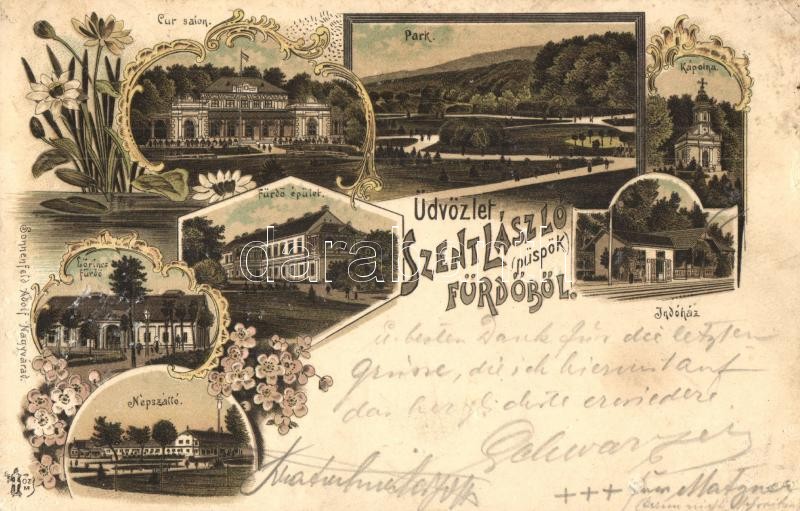 Cur salon.
Park.
Kápolna
Fürdő épület.
Üdvözlet
SZENT LÁSZLÓ
(püspök)
FÜRDŐBŐL.
Lőrincz
fürdő
Indóház
Népszálló.
Sonnenfeld Adolf Nagyvárad.
darabanth.com
u. besten Dank für die letzten
Grüsse, die ich hiermit auf
das herzlichste erwiedere
Schwarzer
+++